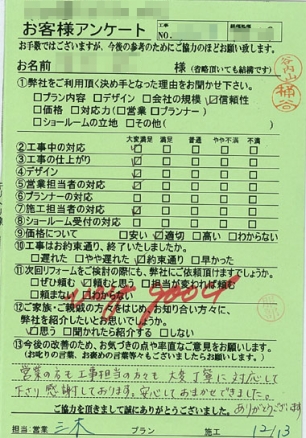 お客様アンケート
お手数ではございますが、今後の参考のためにご協力のほどお願い致します。
お名前 様 (省略頂いても結構です)
①弊社をご利用頂く決め手となった理由をお聞かせ下さい。
□プラン内容 □デザイン □会社の規模 ☑信頼性
□価格 □対応力(□営業 □プランナー)
□ショールームの立地 □その他( )
大変満足 満足 普通 やや不満 不満
②工事中の対応
③工事の仕上がり
④デザイン
⑤営業担当者の対応
⑥プランナーの対応
⑦施工担当者の対応
⑧ショールーム受付の対応
⑨価格について □安い ☑適切 □高い □わからない
⑩工事はお約束通り、終了いたしましたか。
□遅れた □やや遅れた ☑約束通り □早かった
⑪次回リフォームをご検討の際にも、弊社にご依頼頂けますでしょうか。
□ぜひ頼む □頼むと思う □担当が変われば頼む
□頼まない □わからない
very good
⑫ご家族・ご親戚の方をはじめ、お知り合い方々に、
弊社を紹介したいとお思いでしょうか。
☑思う □聞かれたら紹介する □しない
⑬今後の改善のため、お気づきの点や率直なご意見をお願いします。
(お叱りの言葉、お褒めの言葉等々もございましたらお願いします。)
営業の方も工事担当の方も大変丁寧に対応して
下さり感謝しております。安心しておまかせできました。
ありがとうございます
ご協力を頂きまして誠にありがとうございました。
担当: 営業 三木 プラン 施工 12/13